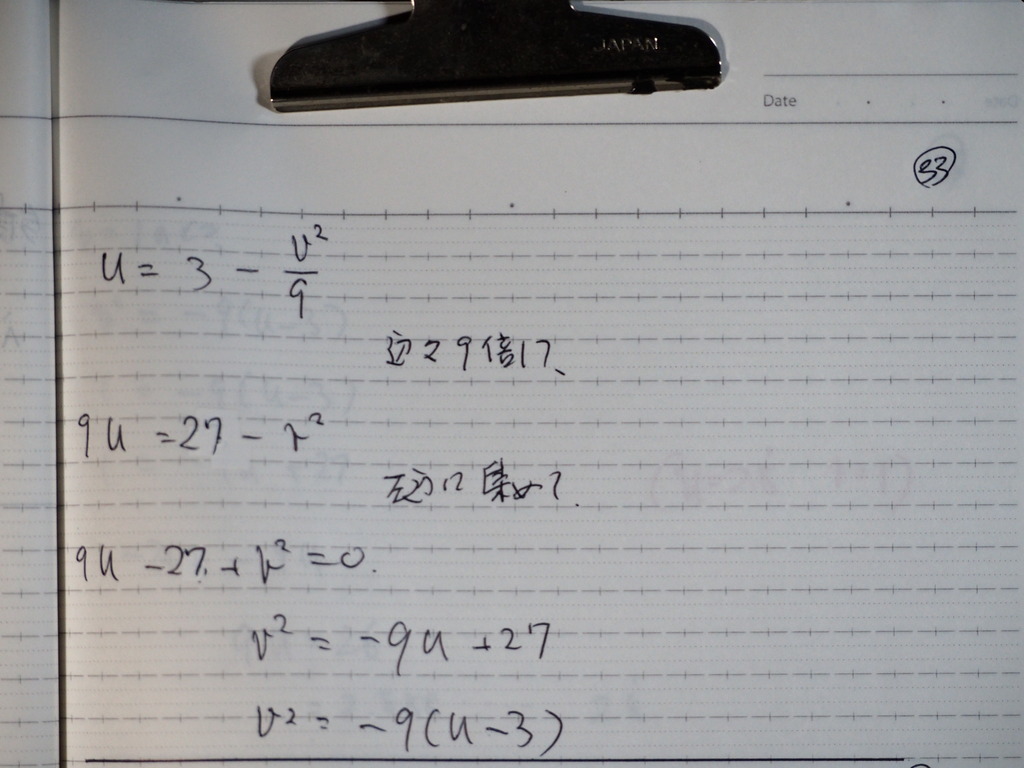 JAPAN
Date
33
u = 3 - v²/9
辺々9倍して、
9u = 27 - v²
左辺に集めて.
9u - 27 + v² = 0.
v² = -9u + 27
v² = -9(u - 3)